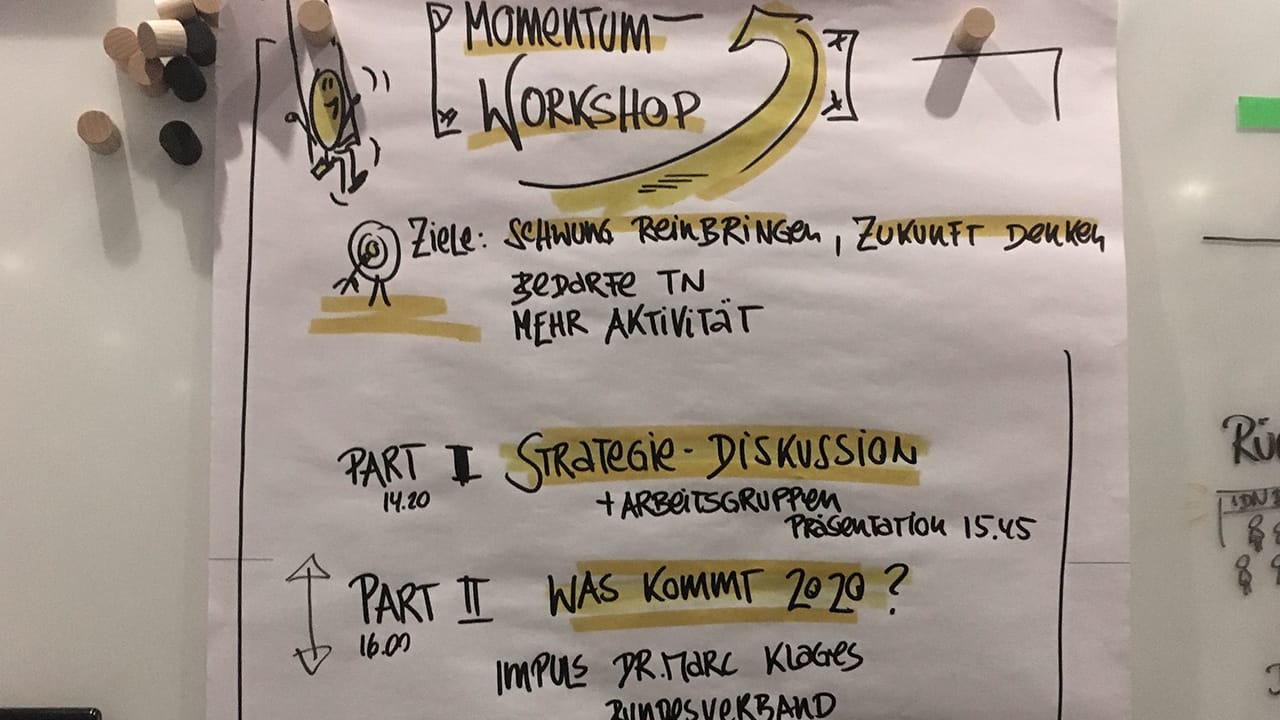 MOMENTUM
WORKSHOP
ZIELE: SCHWUNG REINBRINGEN, ZUKUNFT DENKEN
BEDARFE TN
MEHR AKTIVITÄT
PART I STRATEGIE-DISKUSSION
14.20
+ ARBEITSGRUPPEN
PRÄSENTATION 15.45
PART II WAS KOMMT 2020?
16.00
IMPULS DR. MARC KLAGES
BUNDESVERBAND